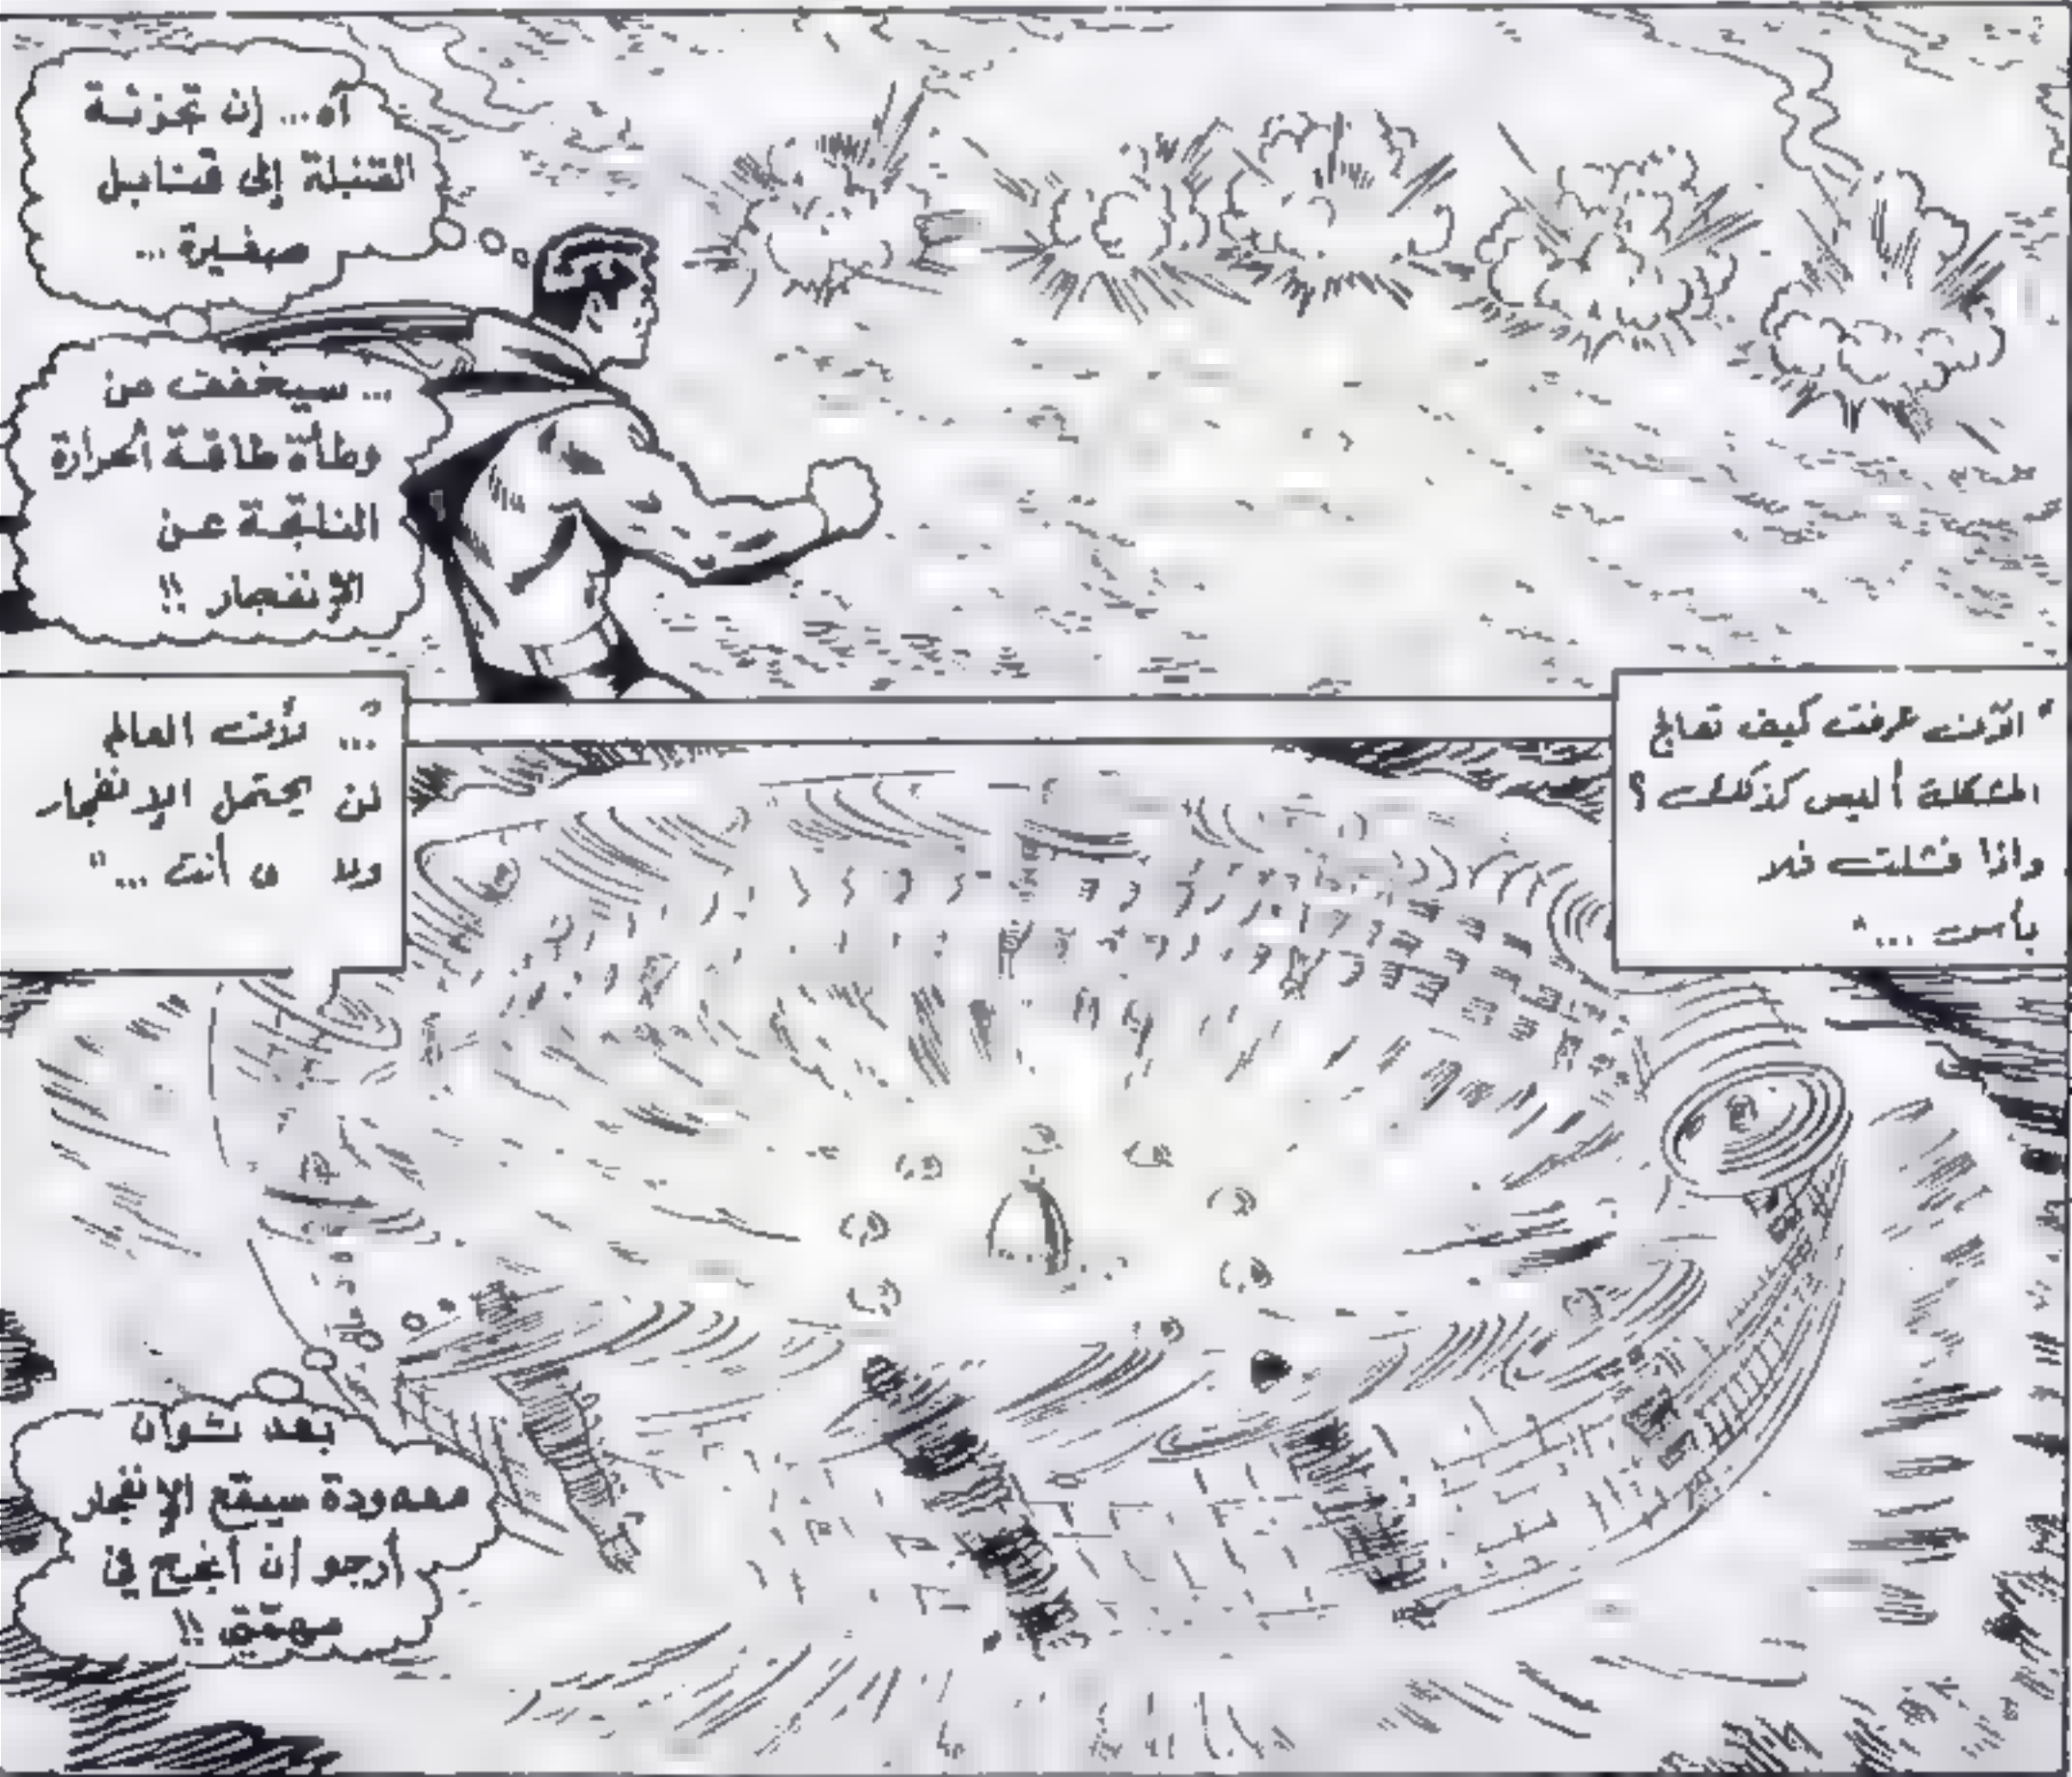 آه... إن تجزئة
القنبلة إلى قنابل
صغيرة ...
... سيخفف من
وطأة طاقة الحرارة
الناتجة عن
الإنفجار !!
" الآن عرفت كيف تعالج
المشكلة أليس كذلك ؟
واذا فشلت فلا
بأس ... "
"... لأن العالم
لن يحتمل الإنفجار
ولا أنت ... "
بعد ثوان
معدودة سيقع الإنفجار
أرجو أن أنجح في
مهمتي !!